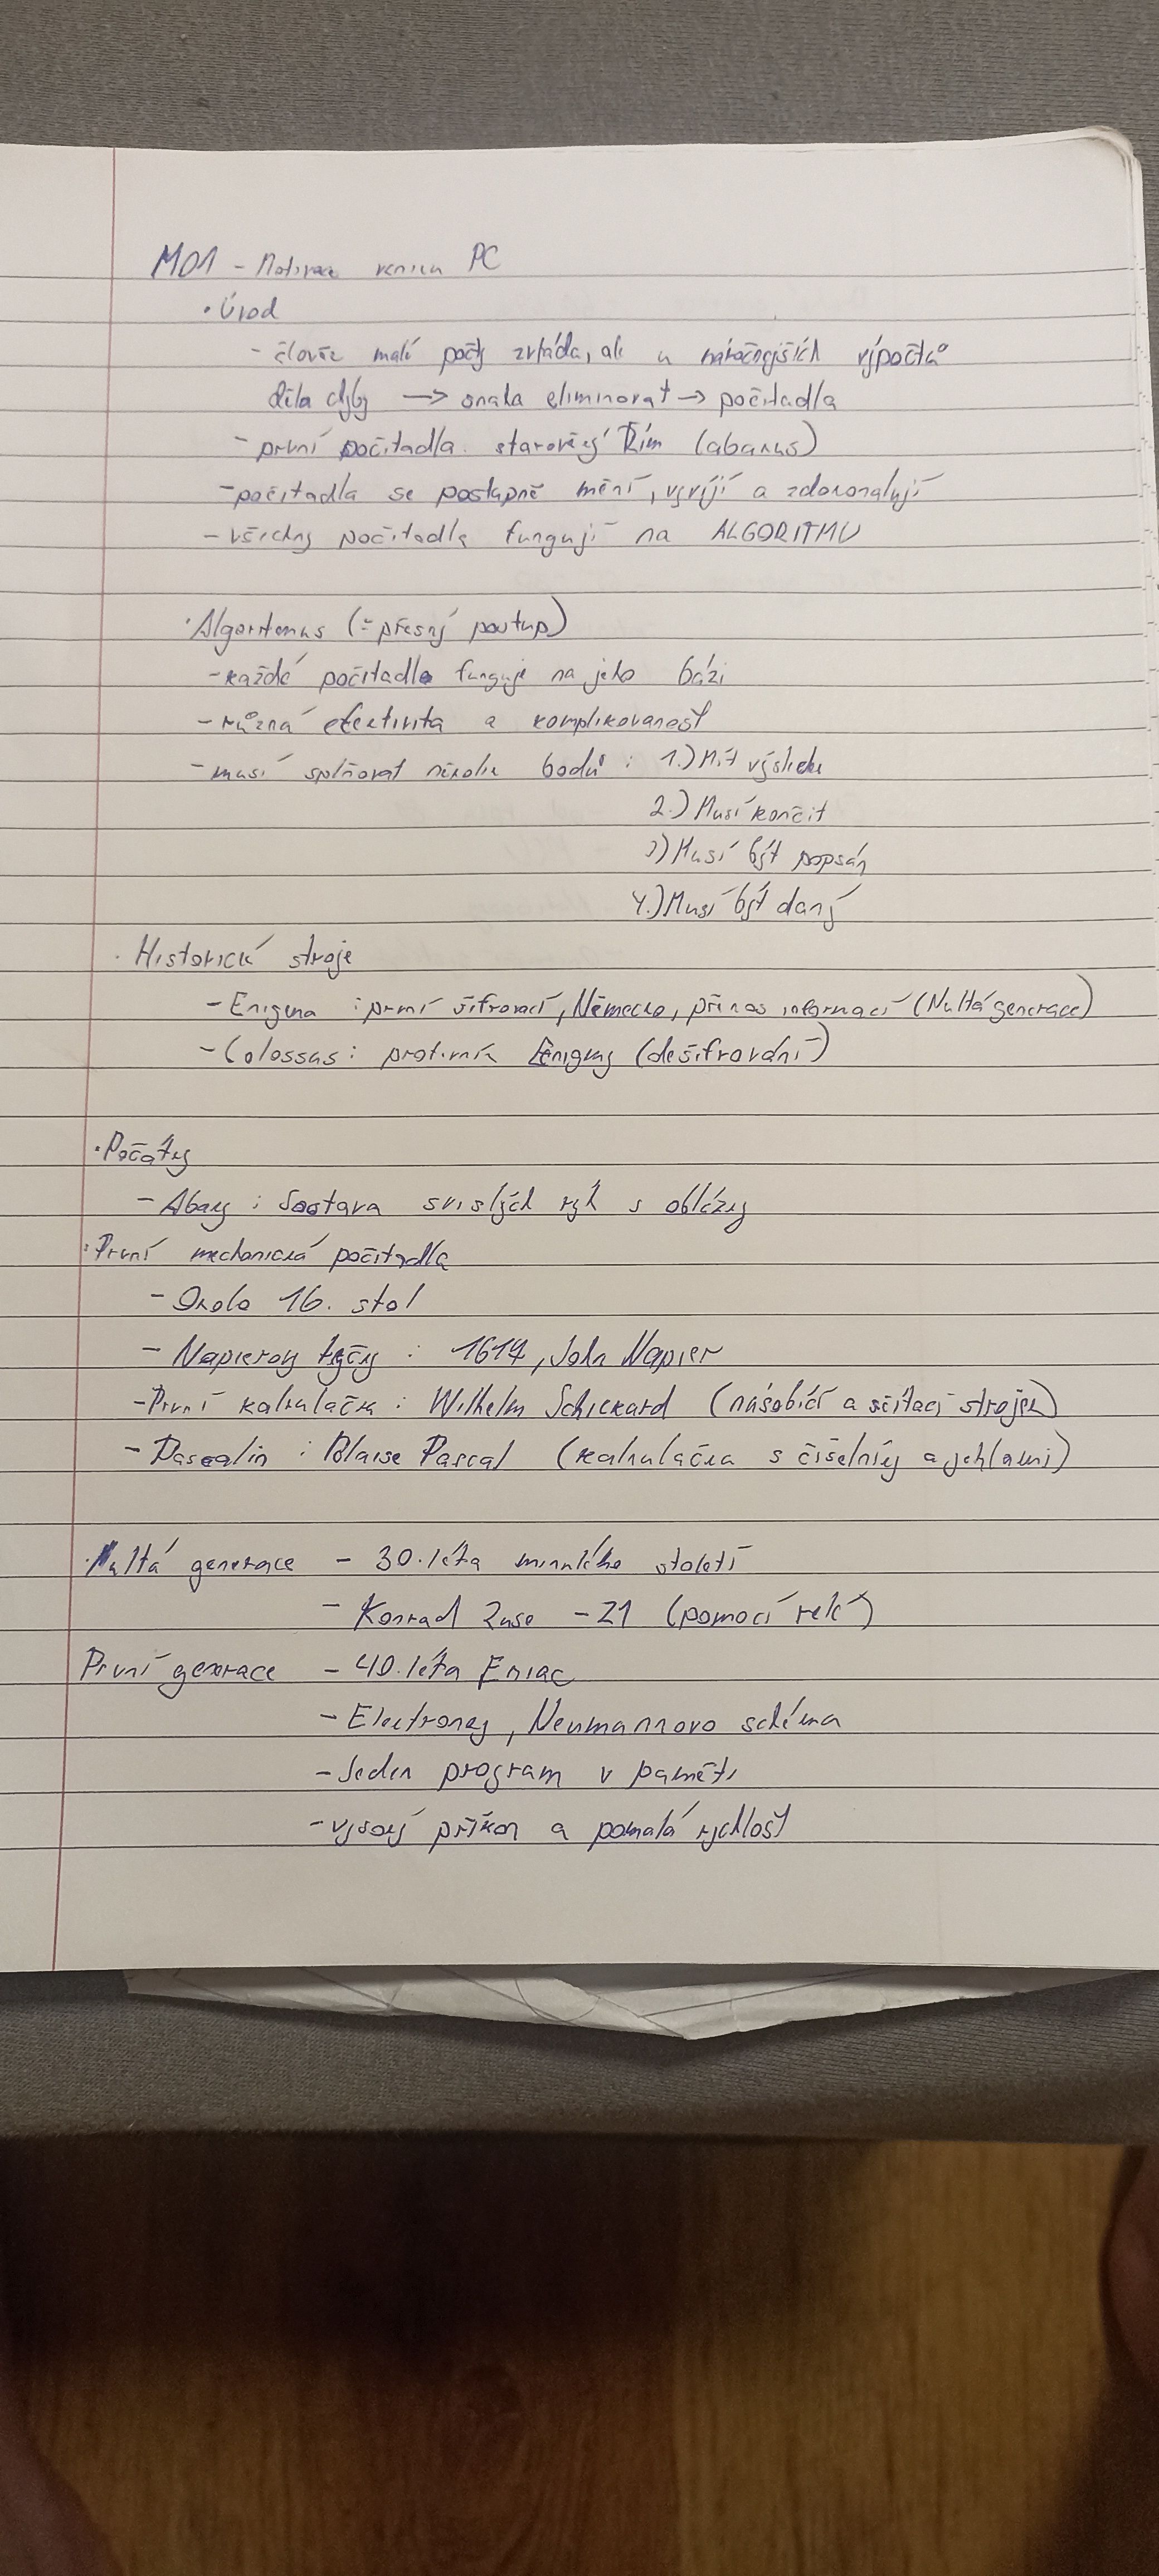 M01 - Motivace vzniku PC
• Úvod
- člověk malé počty zvládá, ale u náročnějších výpočtů
dělá chyby → snaha eliminovat → počitadla
- první počitadla: starověký Řím (abakus)
- počitadla se postupně mění, vyvíjí a zdokonalují
- všechny počitadla fungují na ALGORITMU
• Algoritmus (= přesný postup)
- každé počitadlo funguje na jeho bázi
- různá efektivita a komplikovanost
- musí splňovat několik bodů: 1.) Mít výsledek
2.) Musí končit
3) Musí být popsán
4.) Musí být daný
• Historické stroje
- Enigma: první šifrovací, Německo, přenos informací (Nultá generace)
- Colossus: protivník Enigmy (dešifrování)
• Počátky
- Abaky: Soustava svislých rýh s oblázky
• První mechanická počitadla
- Okolo 16. stol
- Napierovy tyčky: 1617, John Napier
- První kalkulačka: Wilhelm Schickard (násobící a sčítací strojek)
- Pascalin: Blaise Pascal (kalkulačka s číselníky a jehlami)
• Nultá generace - 30. léta minulého století
- Konrad Zuse - Z1 (pomocí relé)
První generace - 40. léta Eniac
- Elektronky, Neumannovo schéma
- Jeden program v paměti
- vysoký příkon a pomalá rychlost